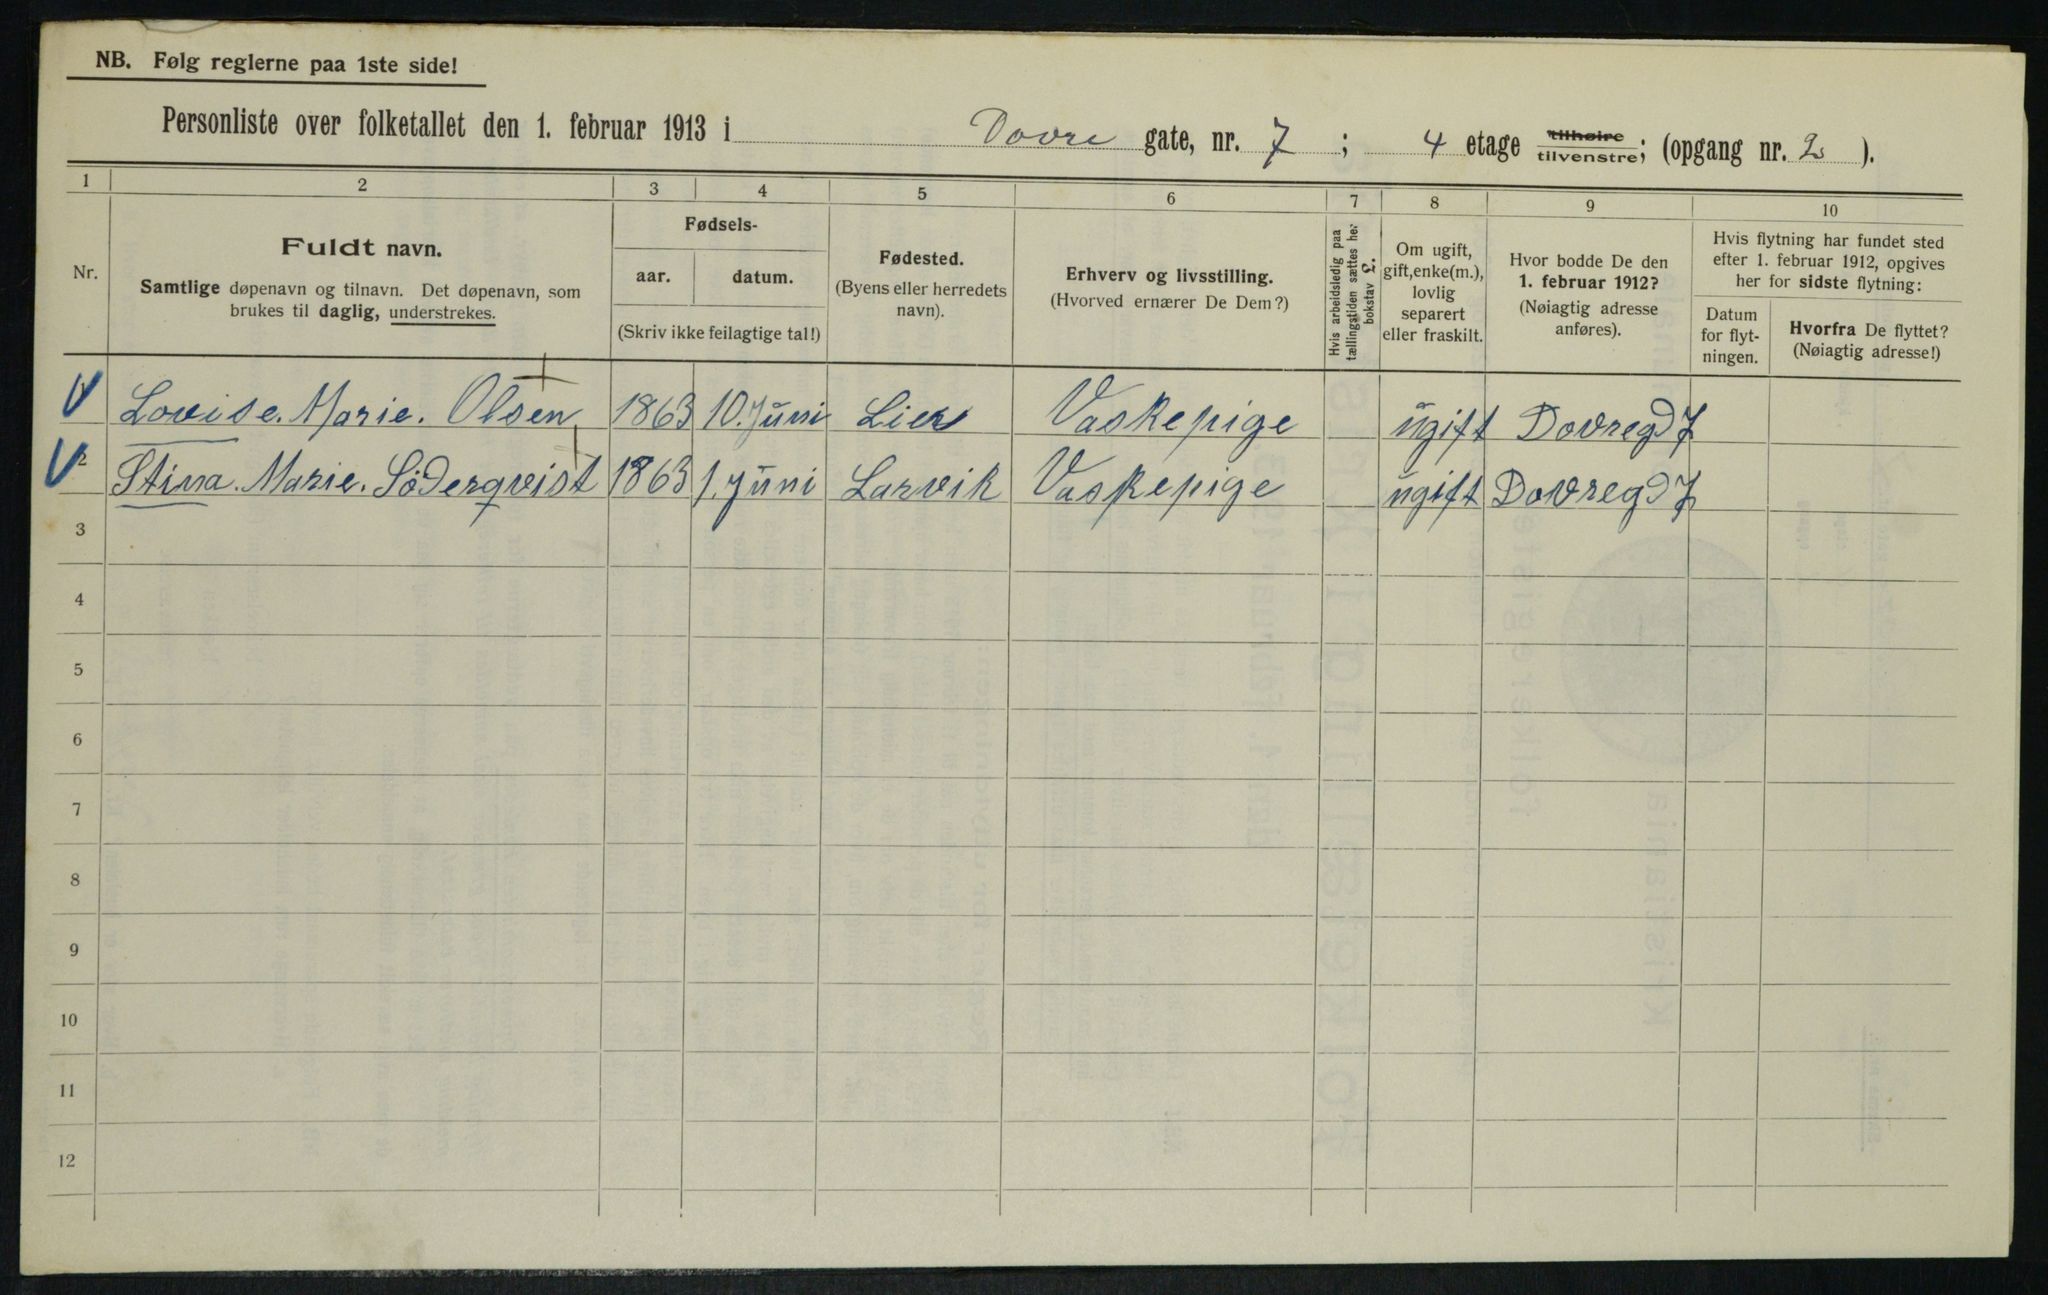 NB. Følg reglerne paa 1ste side!
Personliste over folketallet den 1. februar 1913 i Dovre gate, nr. 7; 4 etage tilhøire tilvenstre; (opgang nr. 2).
1 2 3 4 5 6 7 8 9 10
Nr.
Fuldt navn.
Samtlige døpenavn og tilnavn. Det døpenavn, som
brukes til daglig, understrekes.
Fødsels-
aar. datum.
(Skriv ikke feilagtige tal!)
Fødested.
(Byens eller herredets
navn).
Erhverv og livsstilling.
(Hvorved ernærer De Dem?)
Hvis arbeidsledig paa
tællingstiden sættes her
bokstav £.
Om ugift,
gift, enke(m.),
lovlig
separert
eller fraskilt.
Hvor bodde De den
1. februar 1912?
(Nøiagtig adresse
anføres).
Hvis flytning har fundet sted
efter 1. februar 1912, opgives
her for sidste flytning:
Datum
for flyt-
ningen.
Hvorfra De flyttet?
(Nøiagtig adresse!)
Lovise. Marie. Olsen 1863 10. Juni Lier Vaskepige ugift Dovregd 7
2 Stina. Marie. Söderqvist 1863 1. Juni Larvik Vaskepige ugift Dovregd 7
3
4
5
6
7
8
9
10
11
12